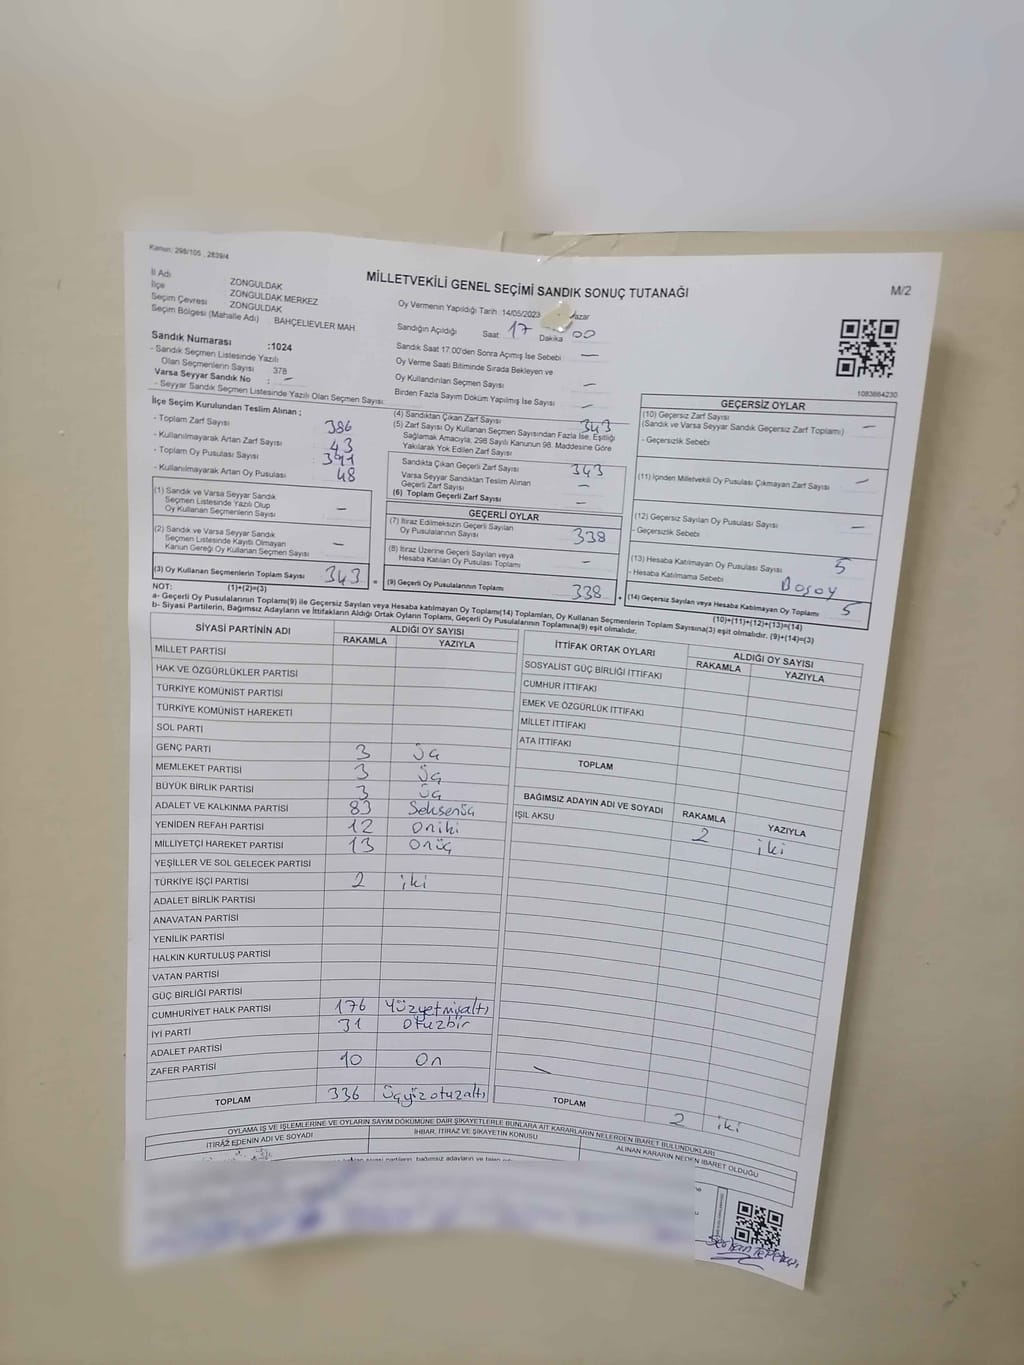 Kanun: 298/105 , 2839/4
MİLLETVEKİLİ GENEL SEÇİMİ SANDIK SONUÇ TUTANAĞI
M/2
İl Adı ZONGULDAK
İlçe ZONGULDAK MERKEZ
Seçim Çevresi ZONGULDAK
Seçim Bölgesi (Mahalle Adı) BAHÇELİEVLER MAH.
Sandık Numarası :1024
- Sandık Seçmen Listesinde Yazılı
Olan Seçmenlerin Sayısı 378
Varsa Seyyar Sandık No : -
- Seyyar Sandık Seçmen Listesinde Yazılı Olan Seçmen Sayısı:
Oy Vermenin Yapıldığı Tarih: 14/05/2023 Pazar
Sandığın Açıldığı Saat 17 Dakika 00
Sandık Saat 17.00'den Sonra Açımış İse Sebebi -
Oy Verme Saati Bitiminde Sırada Bekleyen ve
Oy Kullandırılan Seçmen Sayısı -
Birden Fazla Sayım Döküm Yapılmış İse Sayısı -
1083864230
İlçe Seçim Kurulundan Teslim Alınan ;
- Toplam Zarf Sayısı 386
- Kullanılmayarak Artan Zarf Sayısı 43
- Toplam Oy Pusulası Sayısı : 391
- Kullanılmayarak Artan Oy Pusulası 48
(1) Sandık ve Varsa Seyyar Sandık
Seçmen Listesinde Yazılı Olup
Oy Kullanan Seçmenlerin Sayısı -
(2) Sandık ve Varsa Seyyar Sandık
Seçmen Listesinde Kayıtlı Olmayan
Kanun Gereği Oy Kullanan Seçmen Sayısı -
(3) Oy Kullanan Seçmenlerin Toplam Sayısı 343
(1)+(2)=(3)
(4) Sandıktan Çıkan Zarf Sayısı 343
(5) Zarf Sayısı Oy Kullanan Seçmen Sayısından Fazla İse, Eşitliği
Sağlamak Amacıyla, 298 Sayılı Kanunun 98. Maddesine Göre
Yakılarak Yok Edilen Zarf Sayısı
Sandıkta Çıkan Geçerli Zarf Sayısı 343
Varsa Seyyar Sandıktan Teslim Alınan
Geçerli Zarf Sayısı -
(6) Toplam Geçerli Zarf Sayısı -
GEÇERLİ OYLAR
(7) İtiraz Edilmeksizin Geçerli Sayılan
Oy Pusulalarının Sayısı 338
(8) İtiraz Üzerine Geçerli Sayılan veya
Hesaba Katılan Oy Pusulası Toplamı -
= (9) Geçerli Oy Pusulalarının Toplamı 338
GEÇERSİZ OYLAR
(10) Geçersiz Zarf Sayısı
(Sandık ve Varsa Seyyar Sandık Geçersiz Zarf Toplamı) -
- Geçersizlik Sebebi
(11) İçinden Milletvekili Oy Pusulası Çıkmayan Zarf Sayısı -
(12) Geçersiz Sayılan Oy Pusulası Sayısı -
- Geçersizlik Sebebi
(13) Hesaba Katılmayan Oy Pusulası Sayısı 5
- Hesaba Katılmama Sebebi Boşoy
+ (14) Geçersiz Sayılan veya Hesaba Katılmayan Oy Toplamı 5
(10)+(11)+(12)+(13)=(14)
NOT:
a- Geçerli Oy Pusulalarının Toplamı(9) ile Geçersiz Sayılan veya Hesaba katılmayan Oy Toplamı(14) Toplamları, Oy Kullanan Seçmenlerin Toplam Sayısına(3) eşit olmalıdır. (9)+(14)=(3)
b- Siyasi Partilerin, Bağımsız Adayların ve İttifakların Aldığı Ortak Oyların Toplamı, Geçerli Oy Pusulalarının Toplamına(9) eşit olmalıdır.
SİYASİ PARTİNİN ADI ALDIĞI OY SAYISI
RAKAMLA YAZIYLA
MİLLET PARTİSİ
HAK VE ÖZGÜRLÜKLER PARTİSİ
TÜRKİYE KOMÜNİST PARTİSİ
TÜRKİYE KOMÜNİST HAREKETİ
SOL PARTİ
GENÇ PARTİ 3 Üç
MEMLEKET PARTİSİ 3 Üç
BÜYÜK BİRLİK PARTİSİ 3 Üç
ADALET VE KALKINMA PARTİSİ 83 Seksenüç
YENİDEN REFAH PARTİSİ 12 Oniki
MİLLİYETÇİ HAREKET PARTİSİ 13 Onüç
YEŞİLLER VE SOL GELECEK PARTİSİ
TÜRKİYE İŞÇİ PARTİSİ 2 iki
ADALET BİRLİK PARTİSİ
ANAVATAN PARTİSİ
YENİLİK PARTİSİ
HALKIN KURTULUŞ PARTİSİ
VATAN PARTİSİ
GÜÇ BİRLİĞİ PARTİSİ
CUMHURİYET HALK PARTİSİ 176 Yüzyetmişaltı
İYİ PARTİ 31 Otuzbir
ADALET PARTİSİ
ZAFER PARTİSİ 10 On
TOPLAM 336 Üçyüzotuzaltı
İTTİFAK ORTAK OYLARI ALDIĞI OY SAYISI
RAKAMLA YAZIYLA
SOSYALİST GÜÇ BİRLİĞİ İTTİFAKI
CUMHUR İTTİFAKI
EMEK VE ÖZGÜRLÜK İTTİFAKI
MİLLET İTTİFAKI
ATA İTTİFAKI
TOPLAM
BAĞIMSIZ ADAYIN ADI VE SOYADI RAKAMLA YAZIYLA
IŞIL AKSU 2 iki
TOPLAM 2 iki
OYLAMA İŞ VE İŞLEMLERİNE VE OYLARIN SAYIM DÖKÜMÜNE DAİR ŞİKAYETLERLE BUNLARA AİT KARARLARIN NELERDEN İBARET BULUNDUKLARI
İTİRAZ EDENİN ADI VE SOYADI İHBAR, İTİRAZ VE ŞİKAYETİN KONUSU ALINAN KARARIN NEDEN İBARET OLDUĞU